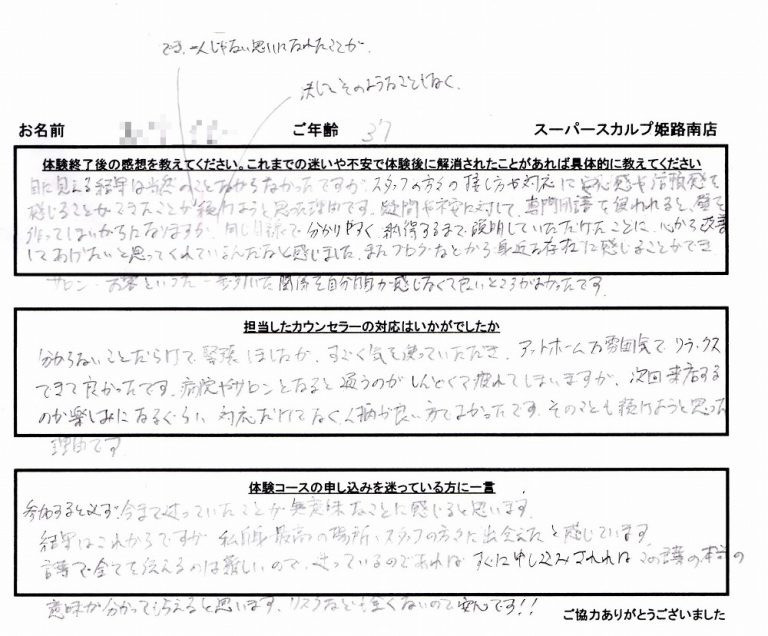 でき、一人じゃない思いになれたことが、
決してそのようなことはなく、
お名前 ご年齢 37 スーパースカルプ姫路南店
体験終了後の感想を教えてください。これまでの迷いや不安で体験後に解消されたことがあれば具体的に教えてください
目に見える結果は当然のことながらなかったですが、スタッフの方々の接し方や対応に安心感や信頼感を
感じることができたことが続けようと思った理由です。疑問や不安に対して、専門用語を使われると、壁を
作ってしまいがちになりますが、同じ目線で分かりやすく納得するまで説明していただけたことに、心から改善
してあげたいと思ってくれているんだなと感じました。またブログなどから身近な存在に感じることができ
サロン・お客といった一歩引いた関係を自分自身が感じなくて良いところがよかったです。
担当したカウンセラーの対応はいかがでしたか
分からないことだらけで、緊張しましたが、すごく気を使っていただき、アットホームな雰囲気でリラックス
できて良かったです。病院やサロンとなると通うのがしんどくて疲れてしまいますが、次回来店する
のが楽しみになるぐらい対応だけでなく、人柄が良い方でよかったです。そのことも続けようと思った
理由です
体験コースの申し込みを迷っている方に一言
参加すると必ず、今まで迷っていたことが無意味なことに感じると思います。
結果はこれからですが、私自身最高の場所、スタッフの方々に出会えたと感じています。
言葉で全てを伝えるのは難しいので、迷っているのであればすぐに申し込みされればこの言葉の本当の
意味が分かってもらえると思います。リスクなども全くないので安心です!!
ご協力ありがとうございました